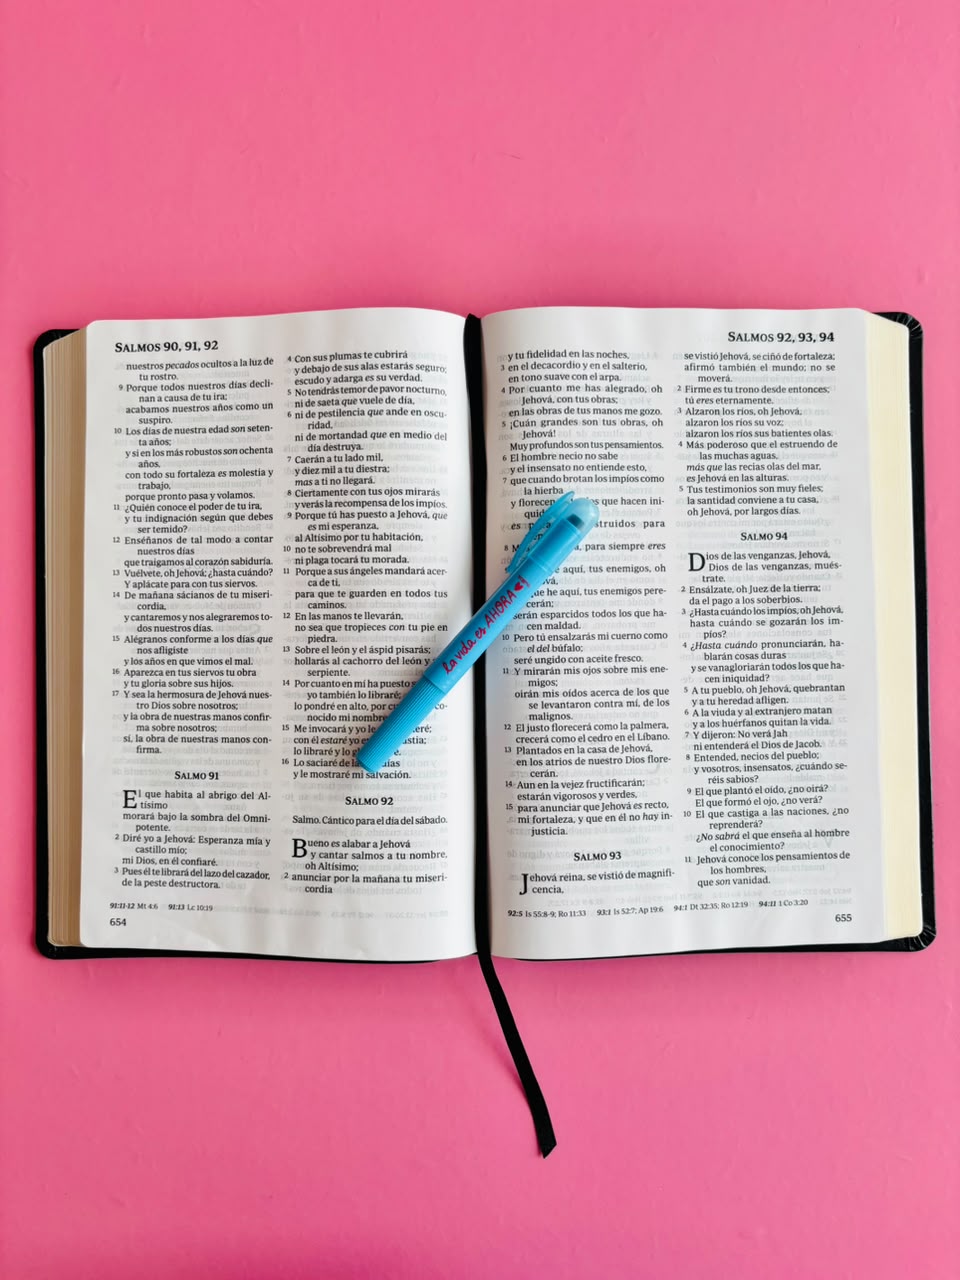 SALMOS 90, 91, 92
nuestros pecados ocultos a la luz de
tu rostro.
9 Porque todos nuestros días decli-
nan a causa de tu ira;
acabamos nuestros años como un
suspiro.
10 Los días de nuestra edad son seten-
ta años;
y si en los más robustos son ochenta
años,
con todo su fortaleza es molestia y
trabajo,
porque pronto pasa y volamos.
11 ¿Quién conoce el poder de tu ira,
y tu indignación según que debes
ser temido?
12 Enséñanos de tal modo a contar
nuestros días
que traigamos al corazón sabiduría.
13 Vuélvete, oh Jehová; ¿hasta cuándo?
Y aplácate para con tus siervos.
14 De mañana sácianos de tu miseri-
cordia,
y cantaremos y nos alegraremos to-
dos nuestros días.
15 Alégranos conforme a los días que
nos afligiste
y los años en que vimos el mal.
16 Aparezca en tus siervos tu obra
y tu gloria sobre sus hijos.
17 Y sea la hermosura de Jehová nues-
tro Dios sobre nosotros;
y la obra de nuestras manos confir-
ma sobre nosotros;
sí, la obra de nuestras manos con-
firma.
SALMO 91
El que habita al abrigo del Al-
tísimo
morará bajo la sombra del Omni-
potente.
2 Diré yo a Jehová: Esperanza mía y
castillo mío;
mi Dios, en él confiaré.
3 Pues él te librará del lazo del cazador,
de la peste destructora.
4 Con sus plumas te cubrirá
y debajo de sus alas estarás seguro;
escudo y adarga es su verdad.
5 No tendrás temor de pavor nocturno,
ni de saeta que vuele de día,
6 ni de pestilencia que ande en oscu-
ridad,
ni de mortandad que en medio del
día destruya.
7 Caerán a tu lado mil,
y diez mil a tu diestra;
mas a ti no llegará.
8 Ciertamente con tus ojos mirarás
y verás la recompensa de los impíos.
9 Porque tú has puesto a Jehová, que
es mi esperanza,
al Altísimo por tu habitación,
10 no te sobrevendrá mal
ni plaga tocará tu morada.
11 Porque a sus ángeles mandará acer-
ca de ti,
para que te guarden en todos tus
caminos.
12 En las manos te llevarán,
no sea que tropieces con tu pie en
piedra.
13 Sobre el león y el áspid pisarás;
hollarás al cachorro del león y
serpiente.
14 Por cuanto en mí ha puesto
yo también lo libraré;
lo pondré en alto, por cu
nocido mi nombre
15 Me invocará y yo le
con él estaré yo e
lo libraré y lo
16 Lo saciaré de
y le mostraré mi salvación.
SALMO 92
Salmo. Cántico para el día del sábado.
Bueno es alabar a Jehová
y cantar salmos a tu nombre,
oh Altísimo;
2 anunciar por la mañana tu miseri-
cordia
91:11-12 Mt 4:6 91:13 Lc 10:19
654
la vida es AHORA
SALMOS 92, 93, 94
y tu fidelidad en las noches,
3 en el decacordio y en el salterio,
en tono suave con el arpa.
4 Por cuanto me has alegrado, oh
Jehová, con tus obras;
en las obras de tus manos me gozo.
5 ¡Cuán grandes son tus obras, oh
Jehová!
Muy profundos son tus pensamientos.
6 El hombre necio no sabe
y el insensato no entiende esto,
7 que cuando brotan los impíos como
la hierba
y florecen que hacen ini-
quid
es truidos para
8 para siempre eres
aquí, tus enemigos, oh
he aquí, tus enemigos pere-
cerán;
serán esparcidos todos los que ha-
cen maldad.
10 Pero tú ensalzarás mi cuerno como
el del búfalo;
seré ungido con aceite fresco.
11 Y mirarán mis ojos sobre mis ene-
migos;
oirán mis oídos acerca de los que
se levantaron contra mí, de los
malignos.
12 El justo florecerá como la palmera,
crecerá como el cedro en el Líbano.
13 Plantados en la casa de Jehová,
en los atrios de nuestro Dios flore-
cerán.
14 Aun en la vejez fructificarán;
estarán vigorosos y verdes,
15 para anunciar que Jehová es recto,
mi fortaleza, y que en él no hay in-
justicia.
SALMO 93
Jehová reina, se vistió de magnifi-
cencia,
se vistió Jehová, se ciñó de fortaleza;
afirmó también el mundo; no se
moverá.
2 Firme es tu trono desde entonces;
tú eres eternamente.
3 Alzaron los ríos, oh Jehová,
alzaron los ríos su voz;
alzaron los ríos sus batientes olas.
4 Más poderoso que el estruendo de
las muchas aguas,
más que las recias olas del mar,
es Jehová en las alturas.
5 Tus testimonios son muy fieles;
la santidad conviene a tu casa,
oh Jehová, por largos días.
SALMO 94
Dios de las venganzas, Jehová,
Dios de las venganzas, mués-
trate.
2 Ensálzate, oh Juez de la tierra;
da el pago a los soberbios.
3 ¿Hasta cuándo los impíos, oh Jehová,
hasta cuándo se gozarán los im-
píos?
4 ¿Hasta cuándo pronunciarán, ha-
blarán cosas duras
y se vanagloriarán todos los que ha-
cen iniquidad?
5 A tu pueblo, oh Jehová, quebrantan
y a tu heredad afligen.
6 A la viuda y al extranjero matan
y a los huérfanos quitan la vida.
7 Y dijeron: No verá Jah
ni entenderá el Dios de Jacob.
8 Entended, necios del pueblo;
y vosotros, insensatos, ¿cuándo se-
réis sabios?
9 El que plantó el oído, ¿no oirá?
El que formó el ojo, ¿no verá?
10 El que castiga a las naciones, ¿no
reprenderá?
¿No sabrá el que enseña al hombre
el conocimiento?
11 Jehová conoce los pensamientos de
los hombres,
que son vanidad.
92:5 Is 55:8-9; Ro 11:33 93:1 Is 52:7; Ap 19:6 94:1 Dt 32:35; Ro 12:19 94:11 1 Co 3:20
655